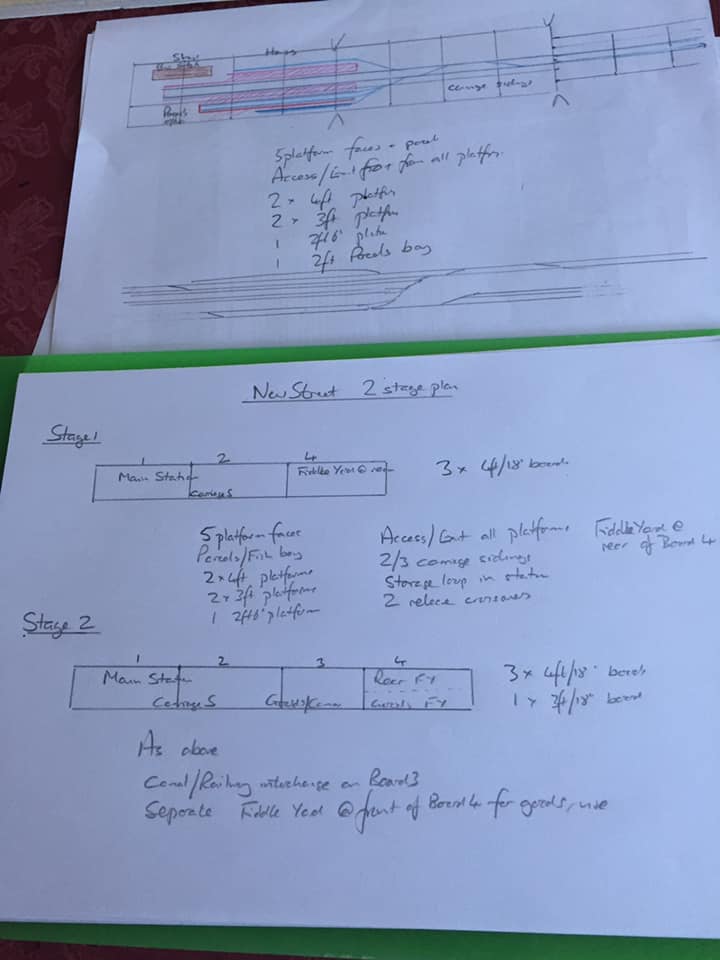 Parcels
Carriage Sidings
5 platform faces + parcel
Access/Exit from all platfrs.
2 x 4ft platfrs
2 x 3ft platfrs
1 2ft6"
1 2ft Parcels bay
New Street 2 stage plan
Stage 1
1 2 4
Main Station
Carriage S
Fiddle Yard @ rear
3 x 4ft/18" boards
5 platform faces
Parcels/Fish bay
2 x 4ft platforms
2 x 3ft platforms
1 2ft6" platform
Access/Exit all platforms
2/3 carriage sidings
Storage loop in station
2 release crossovers
Fiddle Yard @
rear of Board 4
Stage 2
1 2 3 4
Main Station
Carriage S
Goods/Canal
Rear FY
Goods FY
3 x 4ft/18" boards
1 x 3ft/18" board
As above
Canal/Railway interchange on Board 3
Separate Fiddle Yard @ front of Board 4 for goods, use